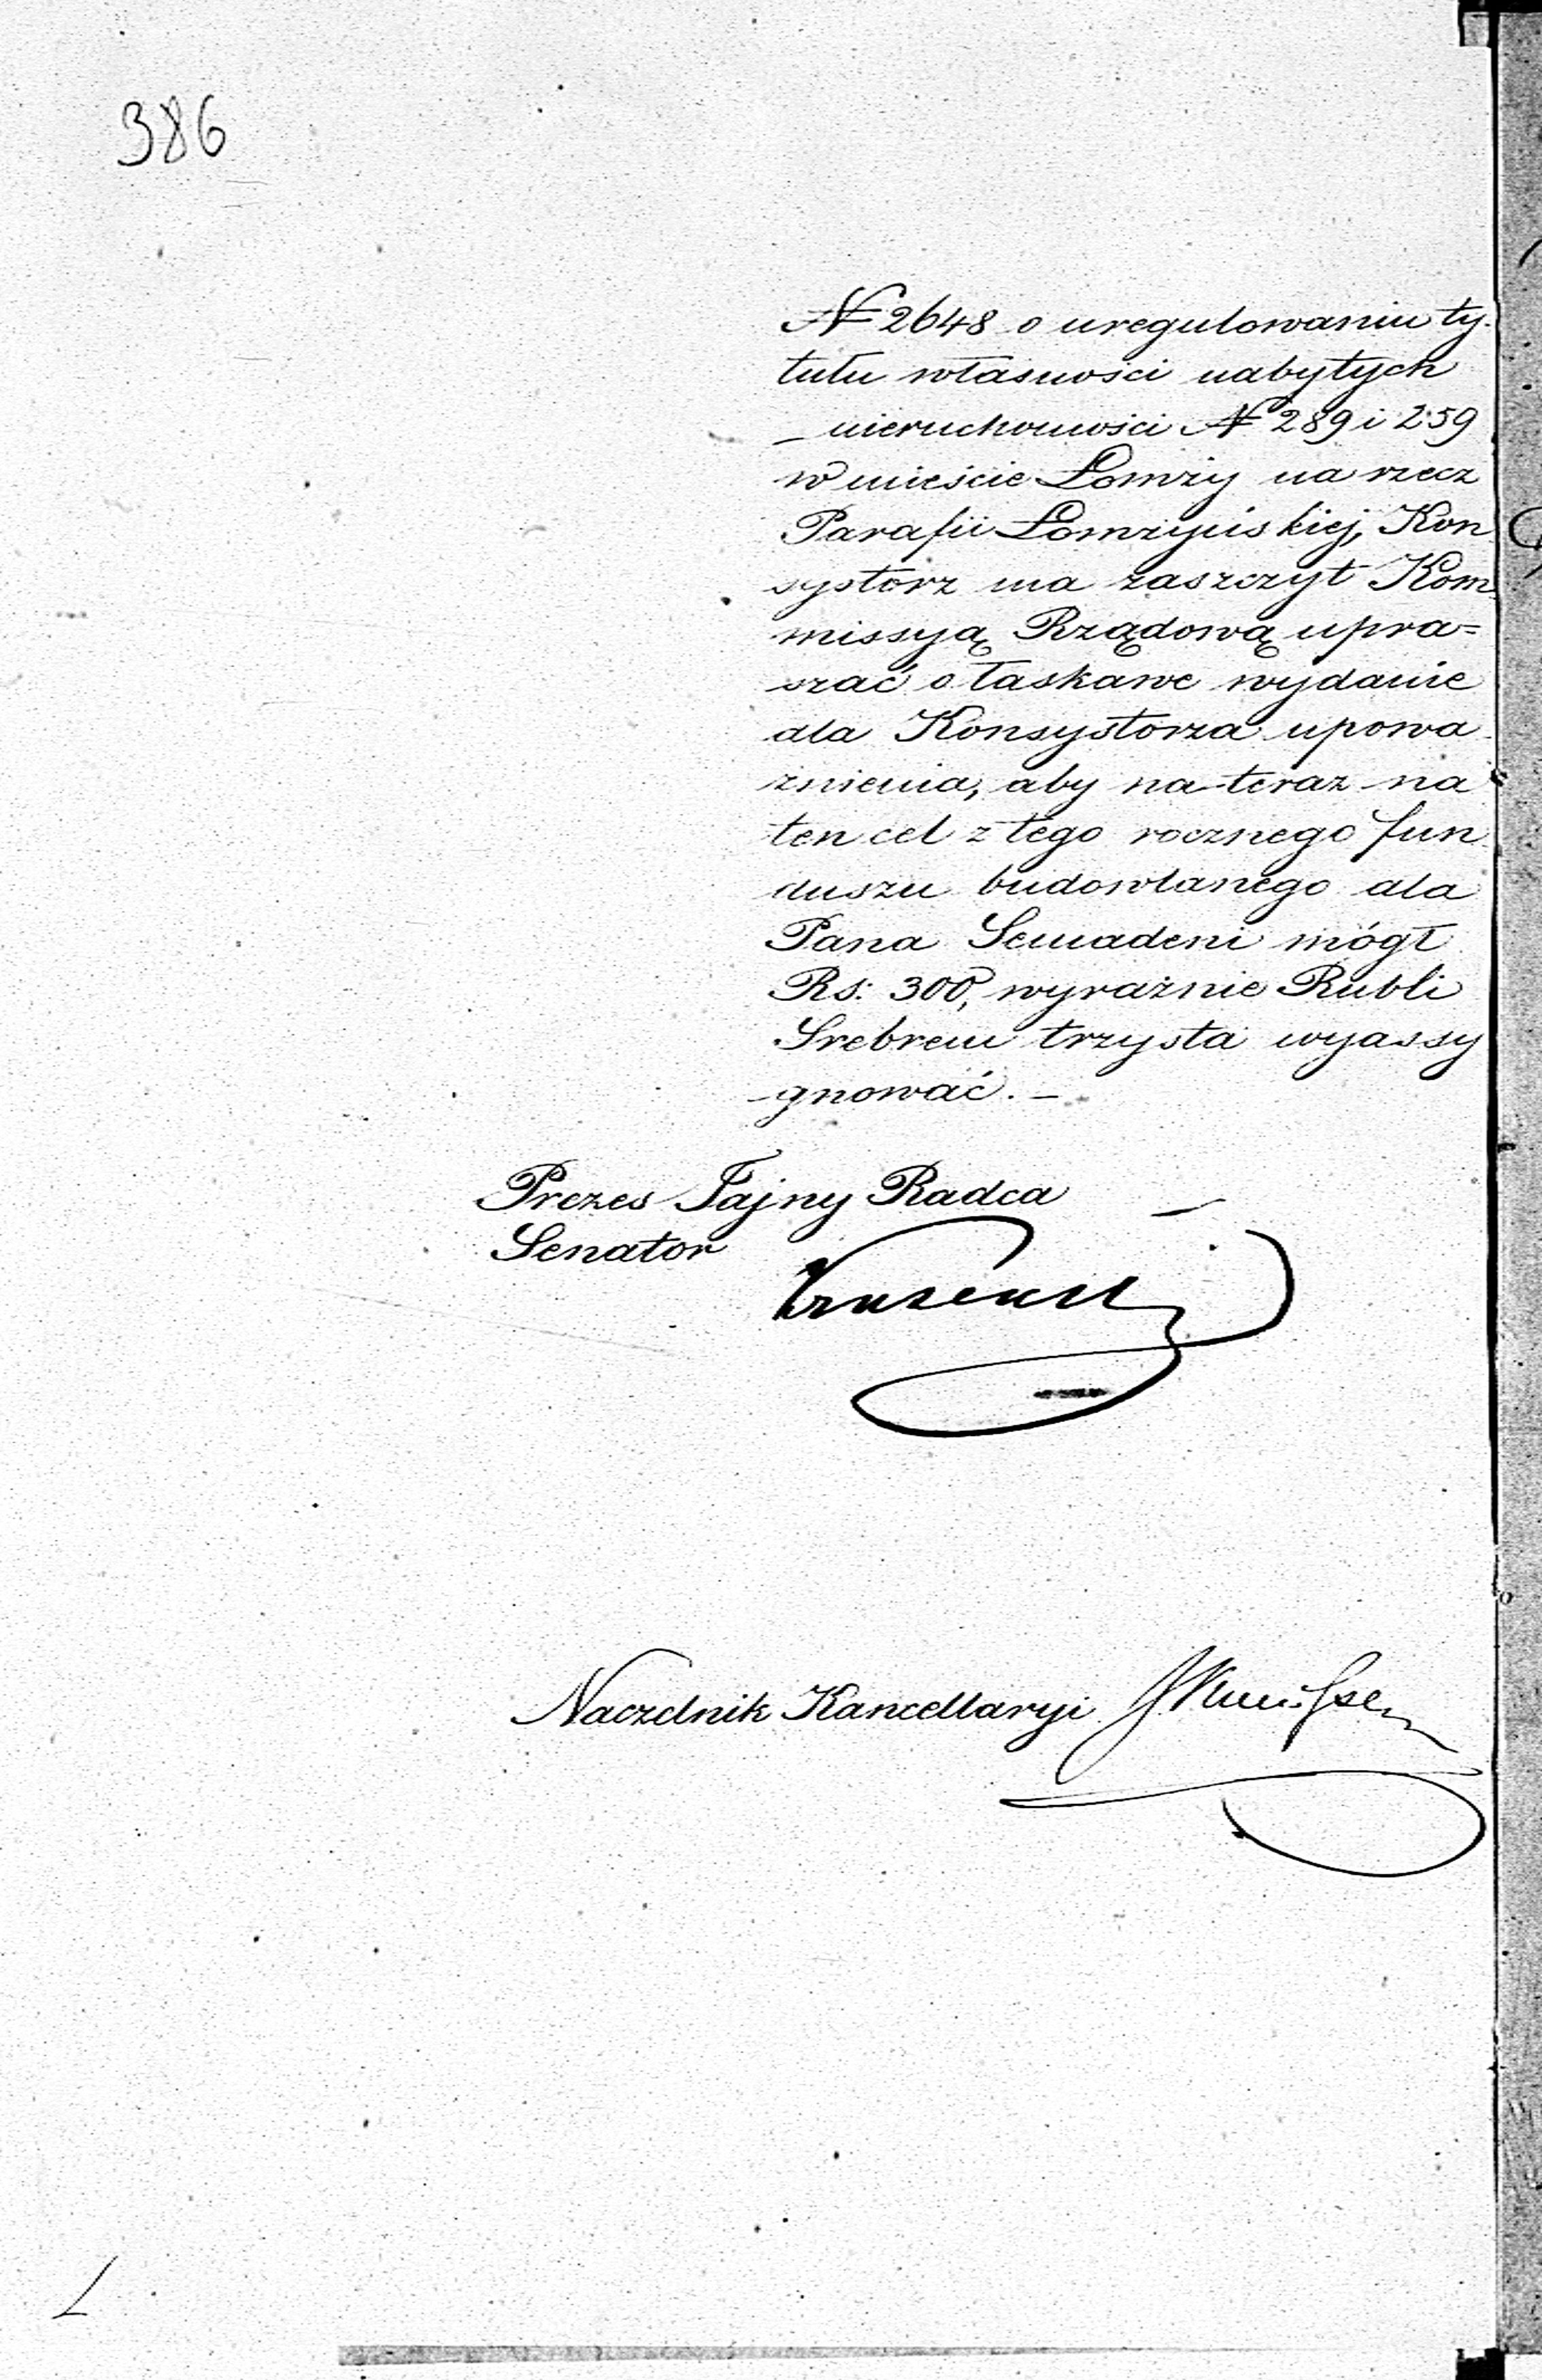 386
№ 2648 o uregulowaniu ty-
tułu własności nabytych
nieruchomości № 289 i 259
w mieście Łomży na rzecz
Parafii Łomżyńskiej, Kon
systorz ma zaszczyt Kom
missyą Rządową upra=
szać o łaskawe wydanie
dla Konsystorza upowa
żnienia, aby na teraz na
ten cel z tego rocznego fun
duszu budowlanego dla
Pana Semadeni mógł
Rs: 300, wyraźnie Rubli
Srebrem trzysta wyassy
gnować. —
Prezes Tajny Radca
Senator
Naczelnik Kancellaryi